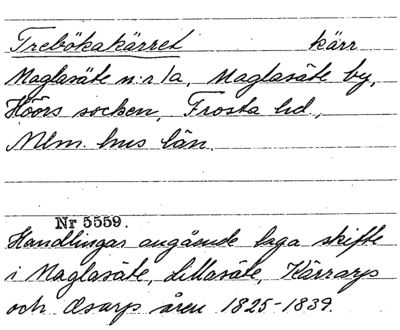 Trebökakärret kärr
Maglasäte n:r 1a, Maglasäte by,
Höörs socken, Frosta hd,
Mlm. hus län.
Nr 5559.
Handlingar angående laga skifte
i Maglasäte, Lillasäte, Kärrarp
och Osarp åren 1825-1839.